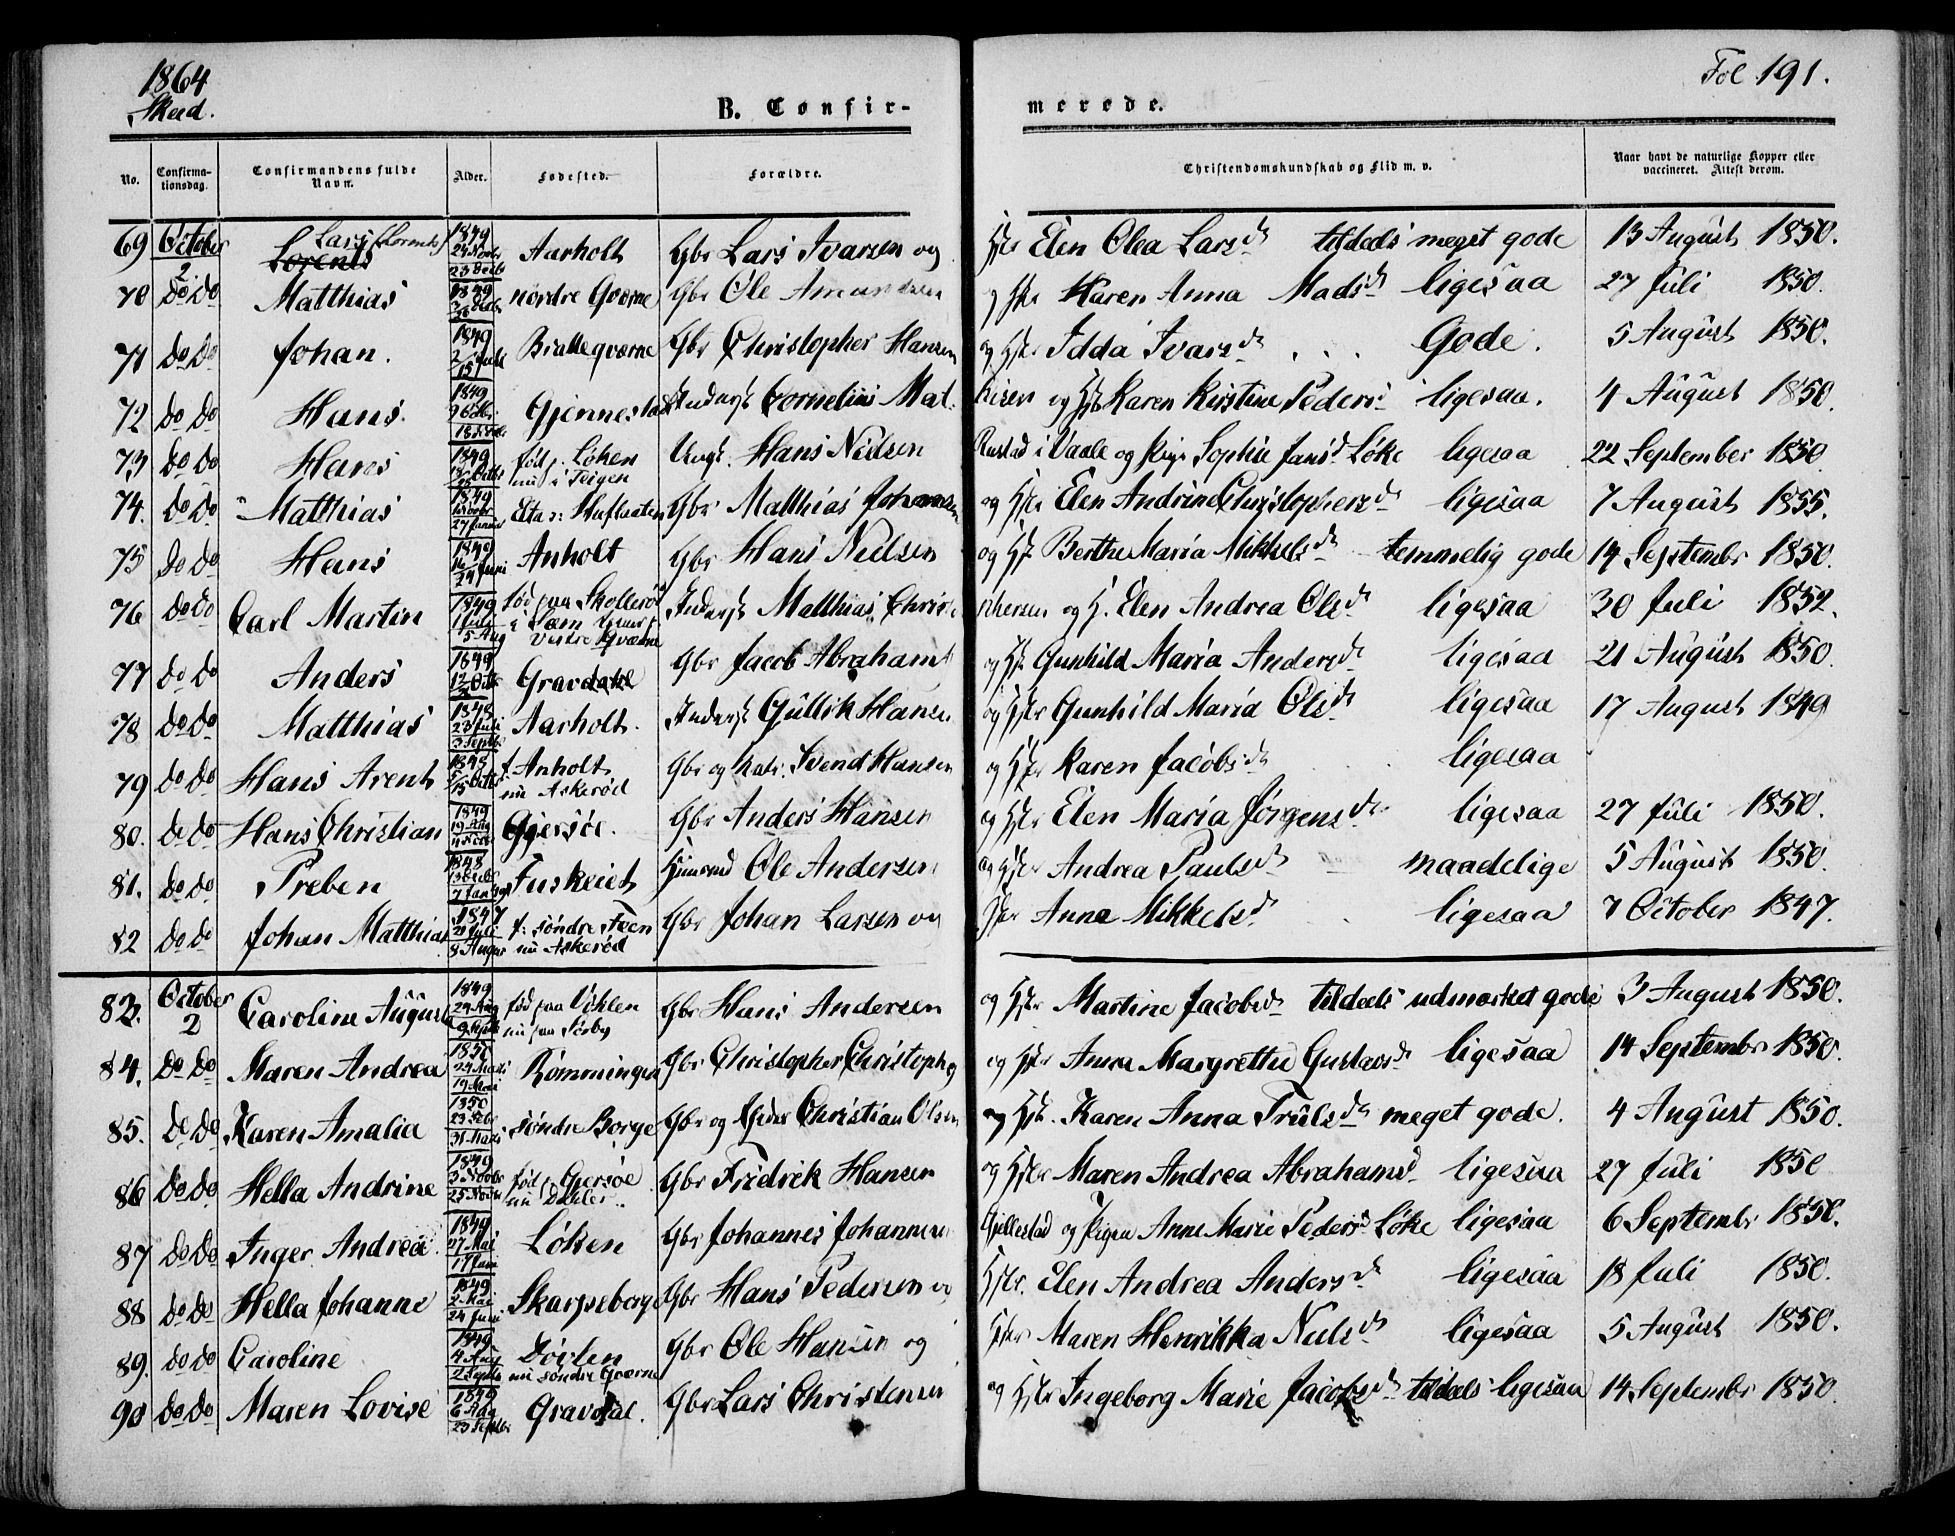 1864
Skeed.
B. Confirmerede.
Fol 191.
No. Confirmationsdag. Confirmandens fulde Navn. Alder. Fødested. Forældre. Christendomskundskab og Flid m. v. Naar havt de naturlige Kopper eller vaccineret. Attest derom.
69 October 2 Lars (Lorents) Lorents 1849 Aarholt Gbr Lars Ivarsen og Elen Olea Larsd tildeels meget gode 13 August 1850.
70 Do Do Matthias 1849 nordre Gværne Gbr Ole Amundsen og Karen Anna Madsd ligesaa 27 Juli 1850.
71 Do Do Johan. 1849 Brattegværne Gbr Christopher Hansen og Idda Ivarsd Gode. 5 August 1850.
72 Do Do Hans. 1849 Gjennestad Cornelius Mat og Karen Kirstine Peders ligesaa. 4 August 1850.
73 Do Do Hans 1849 fød p. Løken nu i Teigen Ungk. Hans Nielsen Rustad i Vaale og Pige Sophie Jansd Løke ligesaa 22 September 1850
74. Do Do Matthias 1849 Gbr Matthias Johannsen og Elen Andrine Christophersd ligesaa 7 August 1855.
75 Do Do Hans 1849 24 Juni Anholt Gbr Hans Nielsen og Berthe Maria Mikkelsd temmelig gode 14 Septembr 1850.
76 Do Do Carl Martin 1849 1 Juli 5 Aug fød paa Skollerød i Vestre Gværne Matthias Christ og Elen Andrea Olsd ligesaa 30 Juli 1852.
77 Do Do Anders 1849 Gravdahl Gbr Jacob Abrahams og Gunhild Maria Andersd ligesaa 21 August 1850.
78 Do Do Matthias 1848 23 Juli 3 Septbr Aarholt. Gullik Hansen og Gunhild Maria Olsd ligesaa 17 August 1849
79 Do Do Hans Arent 1848 f. Anholt nu Askerød Gbr og Svend Hansen og Karen Jacobsd ligesaa
80. Do Do Hans Christian 1849 19 Aug Gjersøe. Gbr Anders Hansen og Elen Maria Jørgensd ligesaa 27 Juli 1850.
81. Do Do Preben 1848 Fuskeiet Huusmand Ole Andersen og Andrea Paulsd maadelige 5 August 1850.
82 Do Do Johan Matthias 1847 21 Juli 8 August f. søndre Feen nu Askerød Gbr Johan Larsen og Anne Mikkelsd ligesaa 7 October 1847.
83. October 2 Caroline Auguste 1849 24 Aug fød paa Løklen nu paa Sørby Gbr Hans Andersen og Martine Jacobsd tildeels udmærket gode 3 August 1850.
84. Do Do Maren Andrea 1850 19 Mai Rømmingen Gbr Christopher Christoph og Anna Margrethe Gustavsd ligesaa 14 Septembr 1850.
85. Do Do Karen Amalia 1850 23 Febr 31 Marts søndre Borge Gbr og Christian Olsen og Karen Anna Trulsd meget gode. 4 August 1850.
86 Do Do Hella Andrine 1849 3 Novbr 25 Novbr fød p. Gjersøe nu Døhler. Gbr Fridrik Hansen og Maren Andrea Abrahamsd ligesaa 27 Juli 1850
87 Do Do Inger Andrea. 1849 27 Mai 17 Juni Løken Gbr Johannes Johannsen Gjellestad og Pigen Anne Marie Pedersd Løke ligesaa 6 Septembr 1850.
88 Do Do Hella Johanne 1849 2 Mai 24 Juni Skarpseborge Gbr Hans Pedersen og Elen Andrea Andersd ligesaa 18 Juli 1850.
89. Do Do Caroline 1849 4 Aug 2 Septbr Dørlen nu søndre Gværne Gbr Ole Hansen og Maren Henrikka Nielsd ligesaa 5 August 1850.
90 Do Do Maren Lovise 1849 6 Aug 23 Septbr Gravdal. Gbr Lars Christensen og Ingeborg Marie Jacobsd tildeels ligesaa 14 Septembr 1850